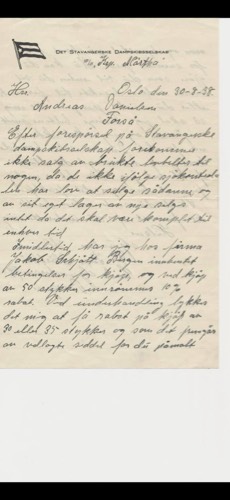 DET STAVANGERSKE DAMPSKIBSSELSKAB
Oslo den 30-8-38.
Hr.
Andreas Danielsen
Efter forespørsel på Stavangerske
dampskibselskap forekommer
ikke salg av brukte livbelter til
nogen, da de ikke ifølge sjøkontrol
len har lov at selge sådanne og
av sit eget lager av nye selges
intet da det skal være komplet til
enhver tid
Imidlertid har jeg hos firma
Jakob Bergen innhentet
betingelser for kjøp, og ved kjøp
av 50 stykker innrømmes 10 %
rabat. Ved underhandling lykkes
det mig at få rabat på kjøp av
30 eller 25 stykker og som det fremgår
av vedlagte seddel for dem påmalt